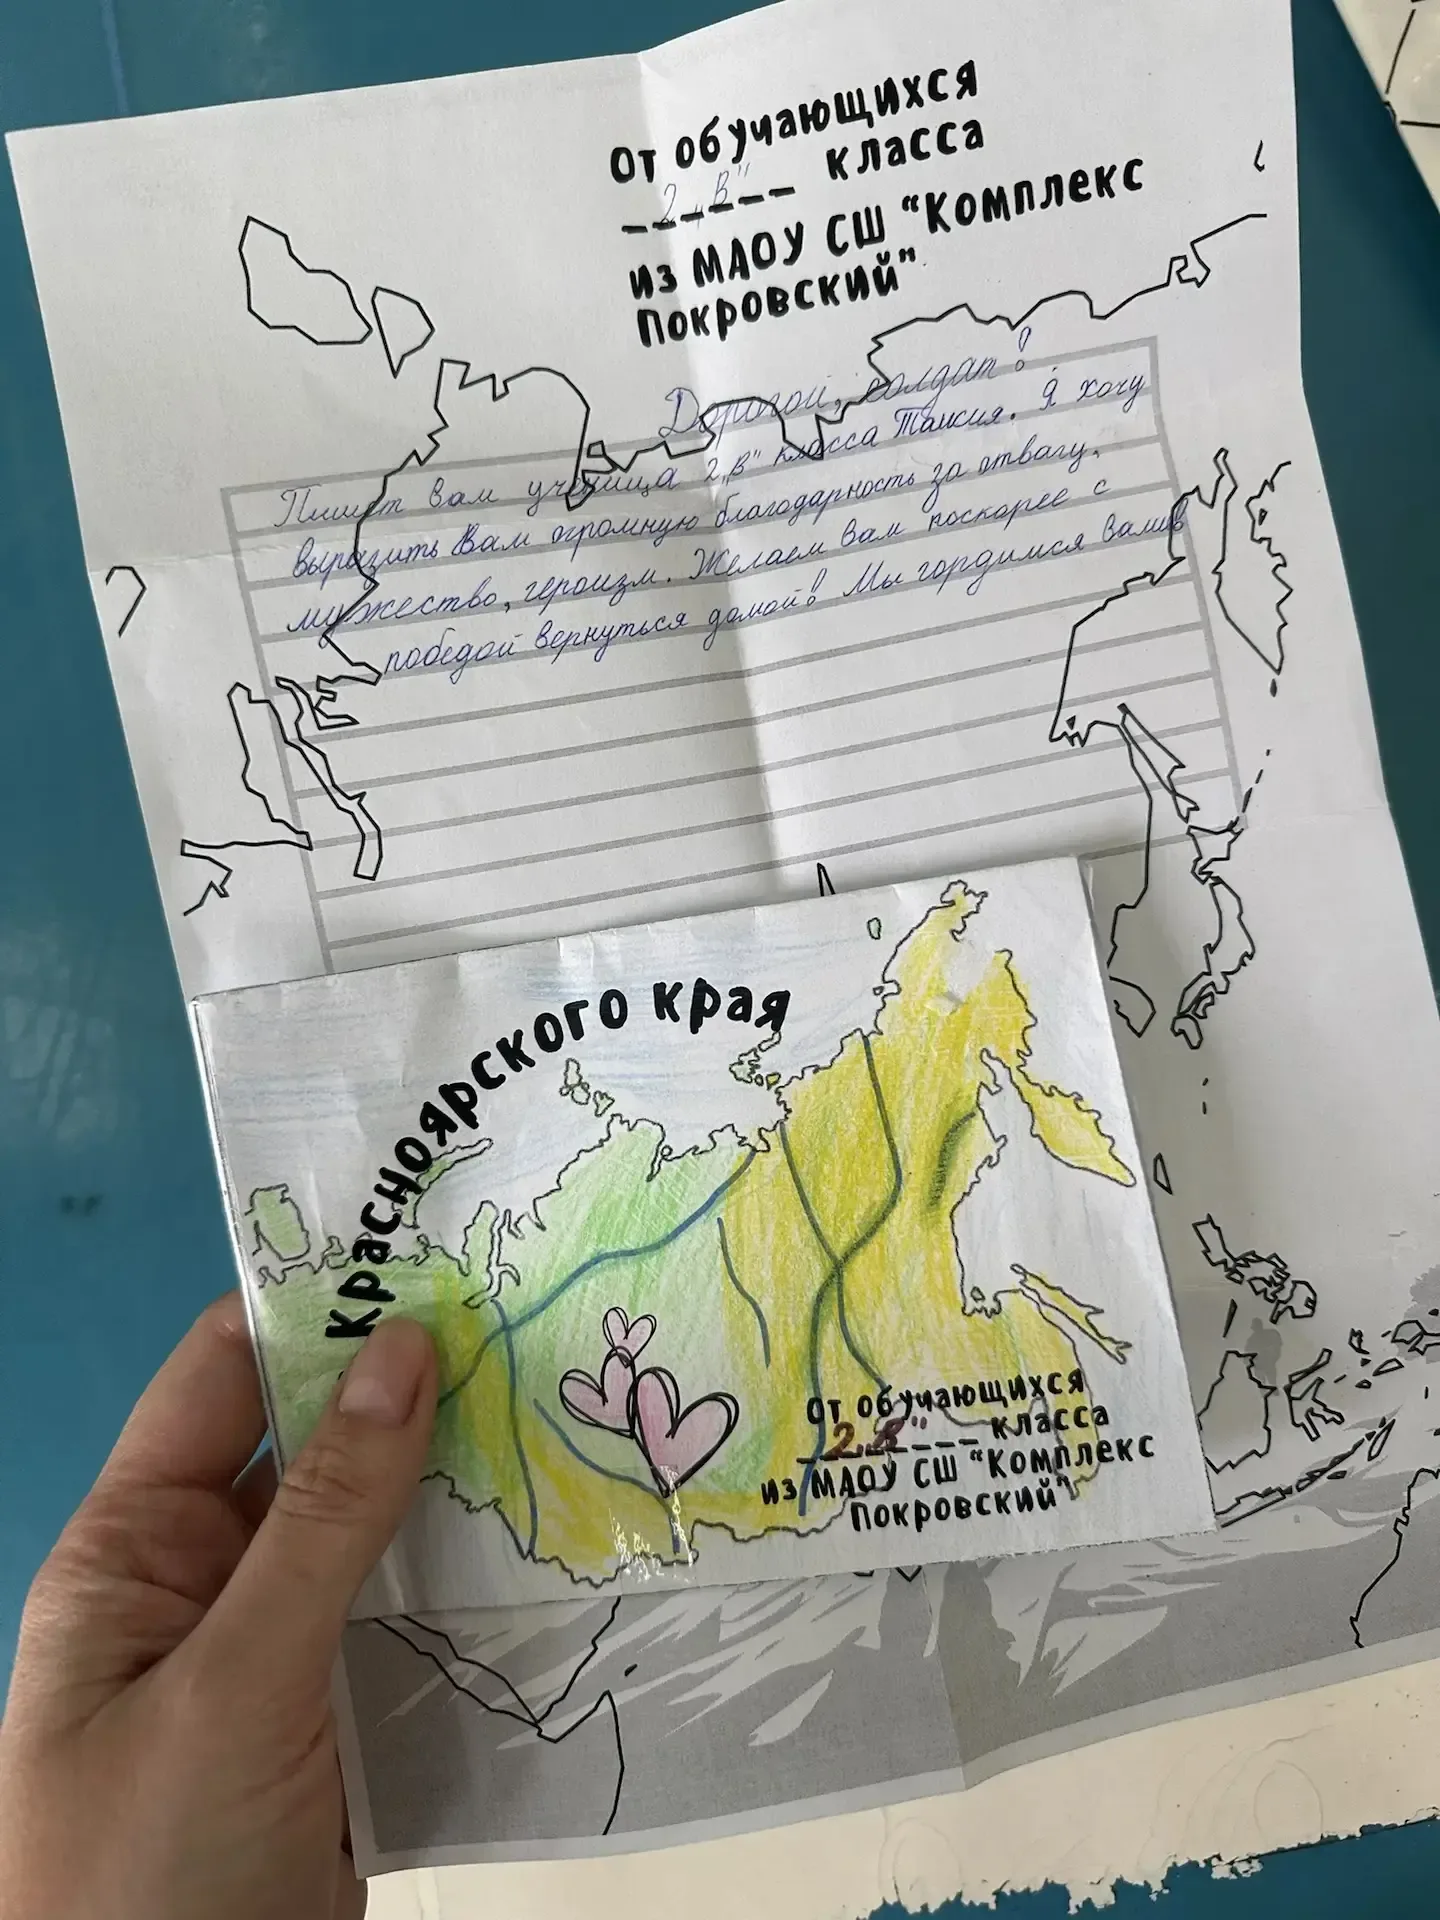 От обучающихся
2 „В" класса
из МАОУ СШ “Комплекс
Покровский”
Дорогой, солдат!
Пишет вам ученица 2„В" класса Таисия. Я хочу
выразить Вам огромную благодарность за отвагу,
мужество, героизм. Желаем вам поскорее с
победой вернуться домой! Мы гордимся вами
Красноярского края
От обучающихся
2„В" класса
из МАОУ СШ “Комплекс
Покровский”